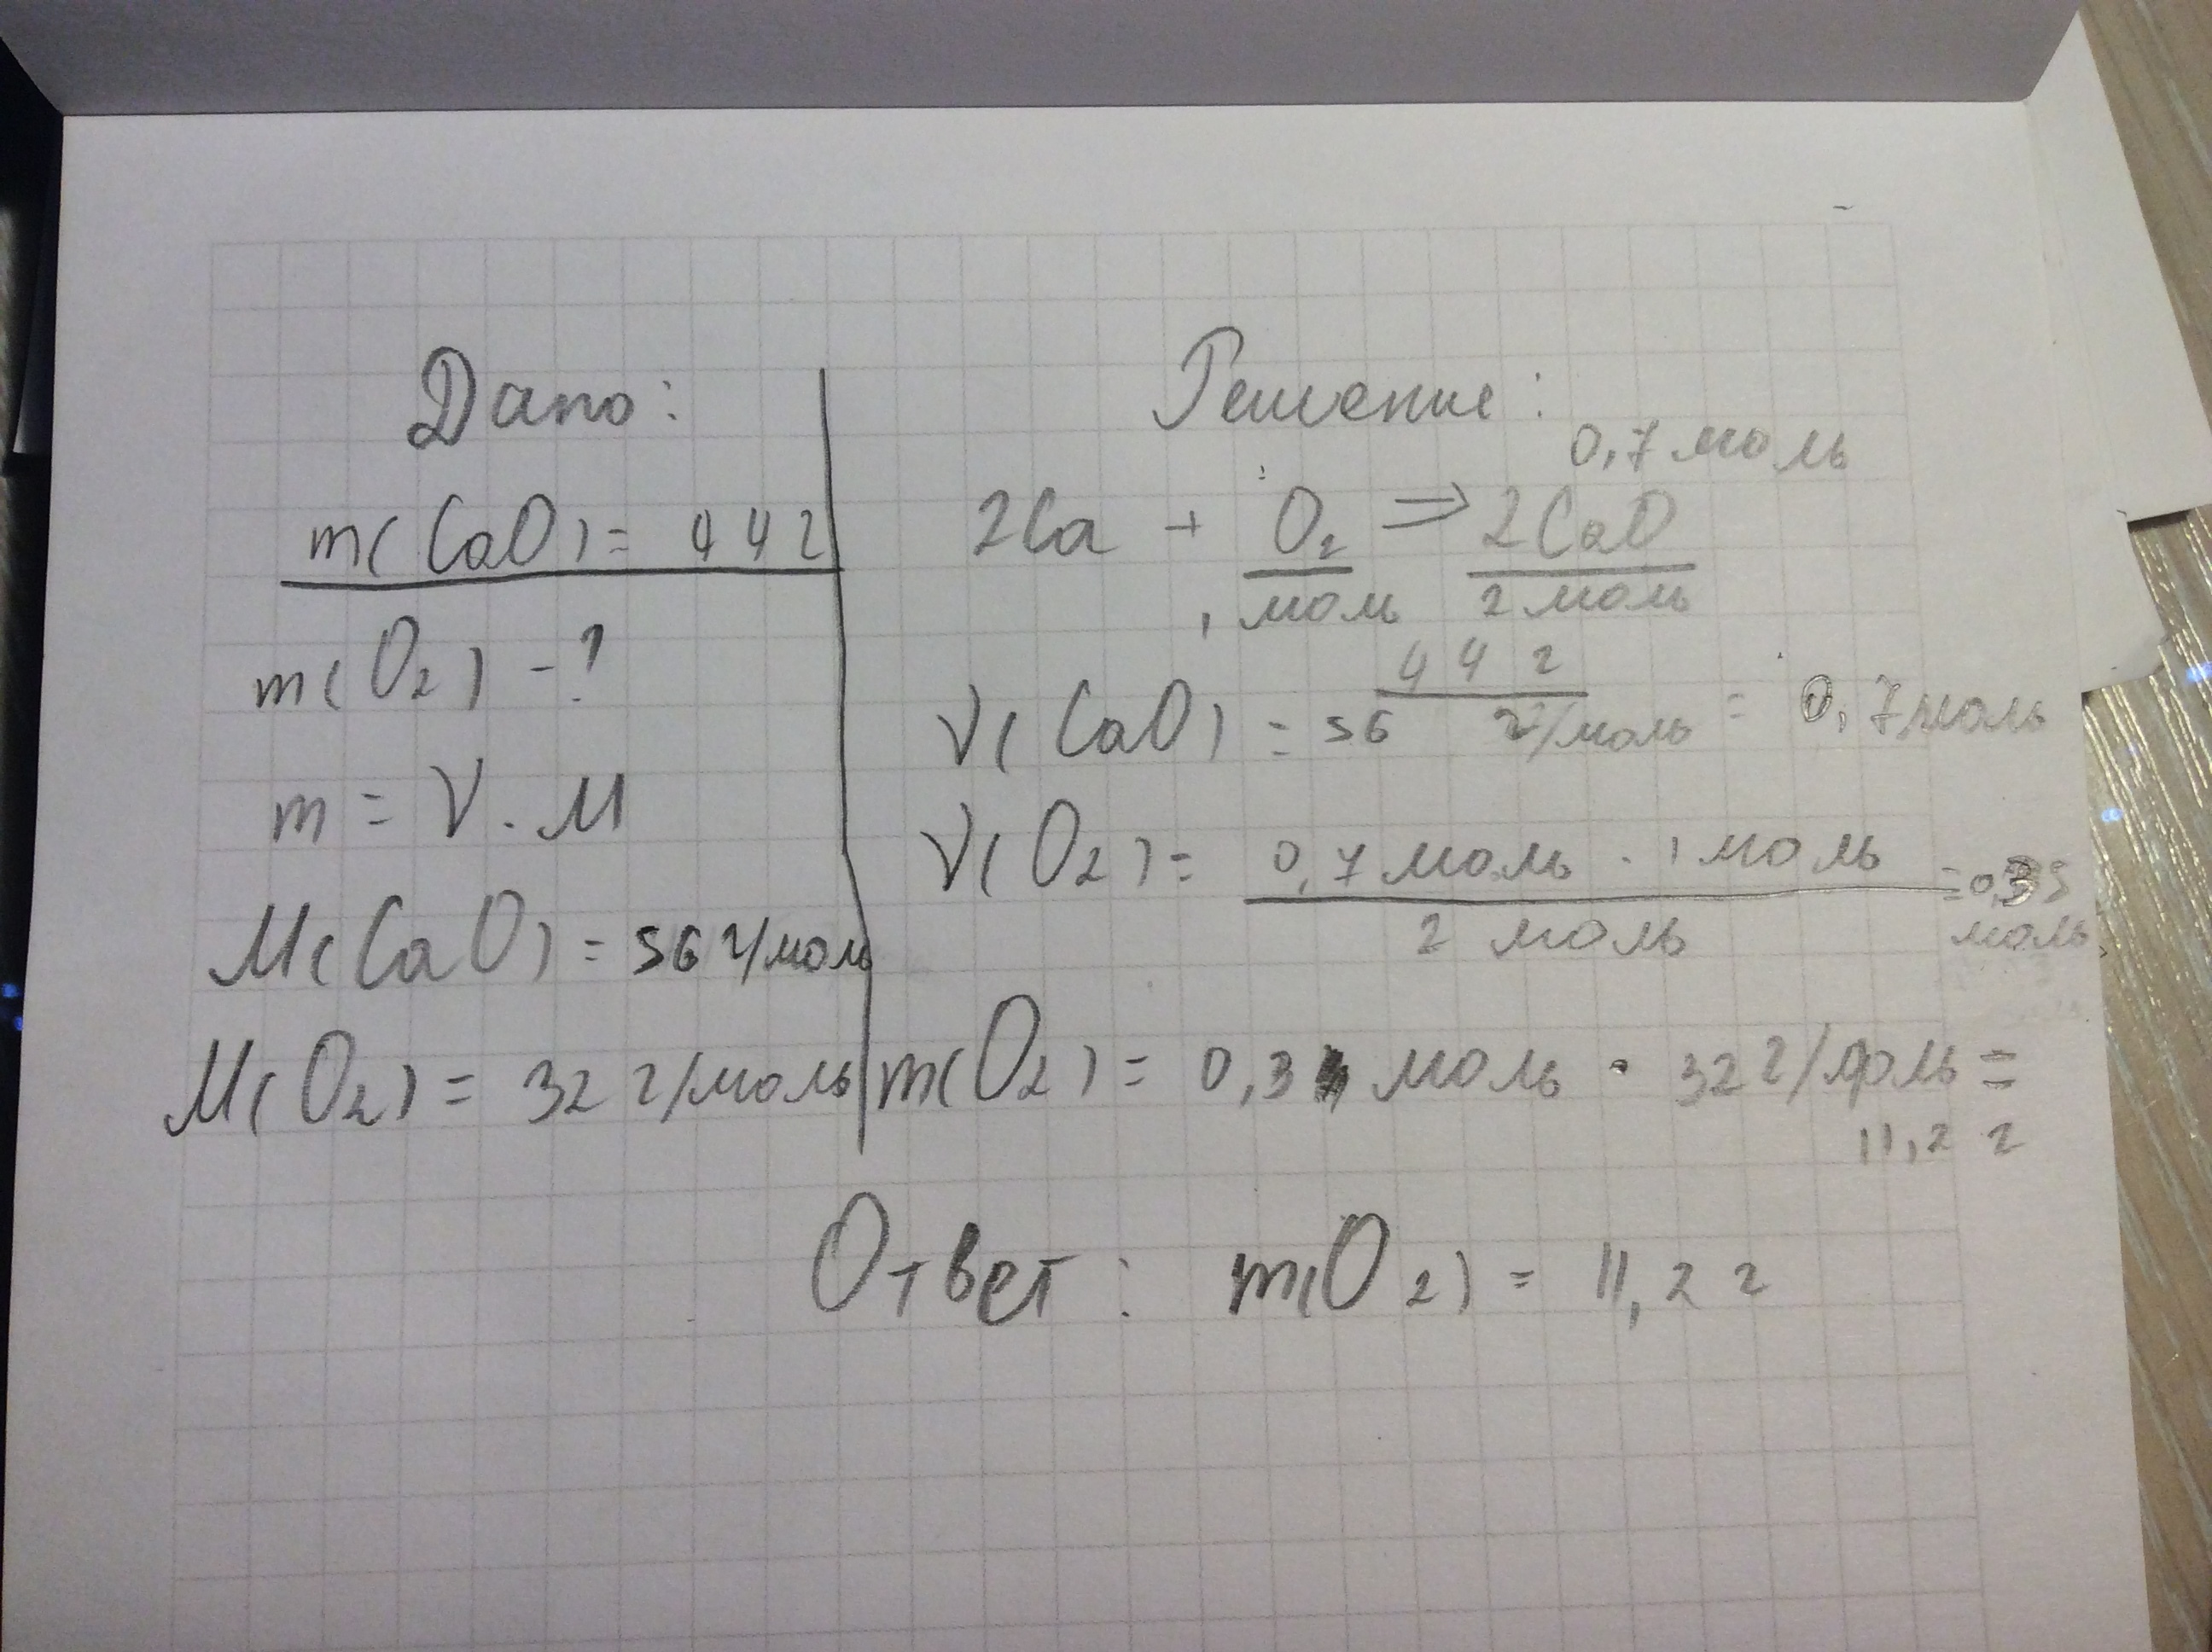 Дано:
m(CaO) = 44г
m(O2) - ?
m = V · M
M(CaO) = 56 г/моль
M(O2) = 32 г/моль
Решение:
0,7 моль
2Ca + O2 ⇒ 2CaO
1 моль 2 моль
44 г
V(CaO) = 56 г/моль = 0,7 моль
V(O2) = 0,7 моль · 1 моль = 0,35
2 моль моль
m(O2) = 0,3 моль · 32 г/моль =
11,2 г
Ответ: m(O2) = 11,2 г